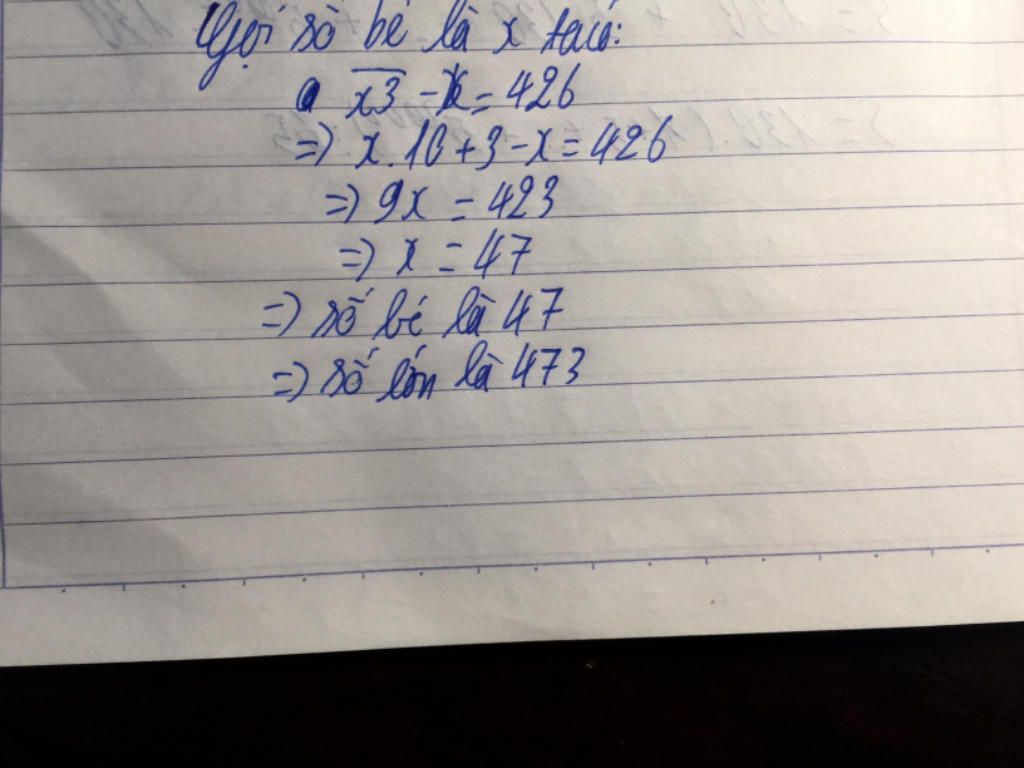 Gọi số bé là x ta có:
x3 - x = 426
=> x.10+3-x=426
=> 9x = 423
=> x = 47
=> số bé là 47
=> số lớn là 473